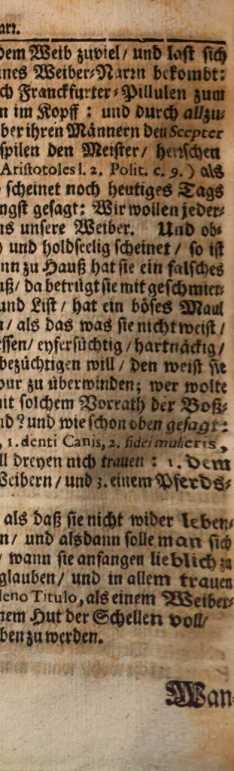 arr.
dem Weib zuviel / und last sich
ines Weiber-Narrn bekombt:
ch Franckfurter-Pillulen zum
n im Kopff : und durch allzu-
ber ihren Männern den Scepter
spilen den Meister / herrschen
Aristotoles l. 2. Polit. c. 9. ) als
scheinet noch heutiges Tags
ngst gesagt: Wir wollen jeder-
ns unsere Weiber. Und ob-
) und holdseelig scheinet / so ist
nn zu Hauß hat sie ein falsches
uß / da betrügt sie mit geschmier-
und List / hat ein böses Maul
n / als das was sie nicht weist /
essen / eyfersüchtig / hartnäckig /
bezüchtigen will / den weist sie
our zu überwinden; wer wolte
nit solchem Vorrath der Boß-
d? und wie schon oben gesagt:
, 1. denti Canis, 2. fidei mulieris,
ll dreyen nich trauen : 1. dem
Weibern / und 3. einem Pferds-
als daß sie nicht wider leben-
n / und alsdann solle man sich
/ wann sie anfangen lieblich zu
glauben / und in allem trauen
leno Titulo, als einem Weiber-
nem Hut der Schellen voll /
ben zu werden.
Wan-